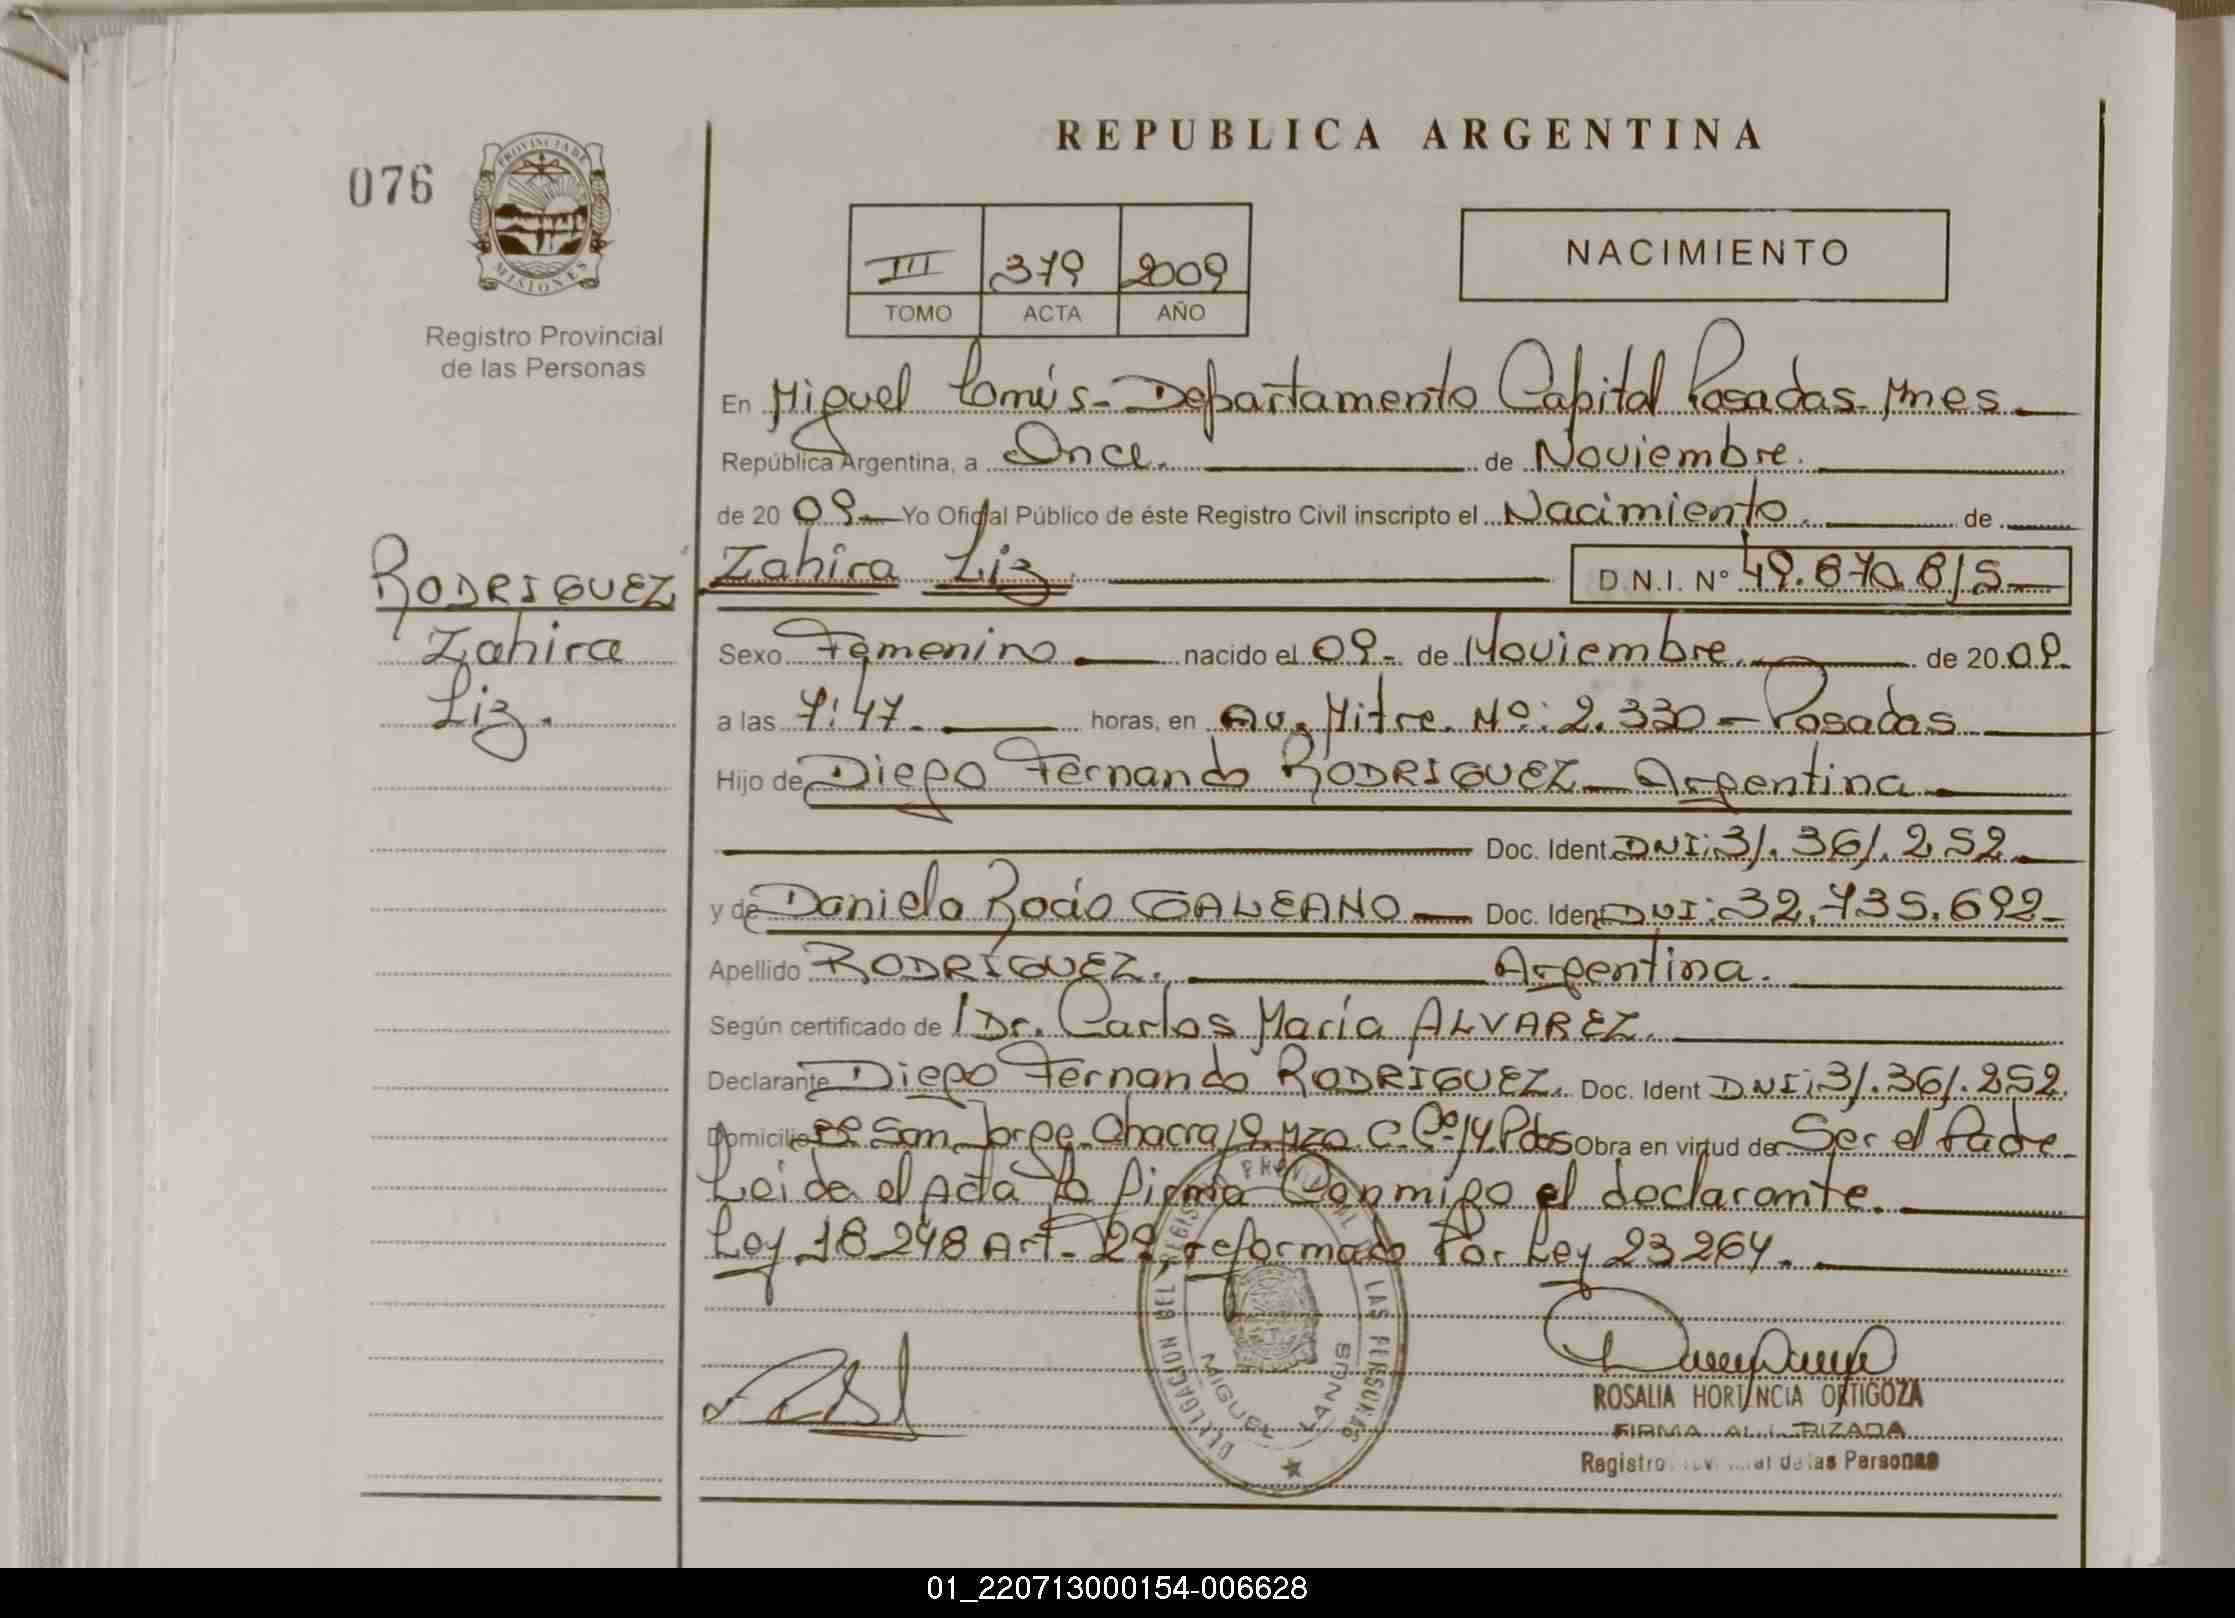 REPUBLICA ARGENTINA
076
PROVINCIA DE
MISIONES
Registro Provincial
de las Personas
III 379 2009
TOMO ACTA AÑO
NACIMIENTO
En Miguel Lanús - Departamento Capital Posadas - Mnes
República Argentina, a Once. de Noviembre.
de 20 09 Yo Oficial Público de éste Registro Civil inscripto el Nacimiento. de
RODRIGUEZ
Zahira
Liz.
Zahira Liz. D.N.I. Nº 49.870.815
Sexo Femenino nacido el 09 - de Noviembre. de 20 09.
a las 7:47. horas, en Av. Mitre. Nº: 2.330 - Posadas
Hijo de Diego Fernando RODRIGUEZ - Argentina
Doc. Ident. DNI: 31.361.252
y de Daniela Rocío GALEANO Doc. Ident DNI: 32.735.692
Apellido RODRIGUEZ. Argentina.
Según certificado de Dr. Carlos María ALVAREZ.
Declarante Diego Fernando RODRIGUEZ. Doc. Ident DNI: 31.361.252.
Domicilio Bº San Jorge - Chacra 19. Mza. C. Cº 14. Pdas Obra en virtud de Ser el Padre
Leida el Acta la firma Conmigo el declarante.
Ley 18 248 Art - 2º, reformado Por Ley 23 264.
DELEGACION DEL REGISTRO PROVINCIAL DE LAS PERSONAS
MIGUEL LANUS
ROSALIA HORTENCIA ORTIGOZA
FIRMA AUTORIZADA
Registro Provincial de las Personas
01_220713000154-006628